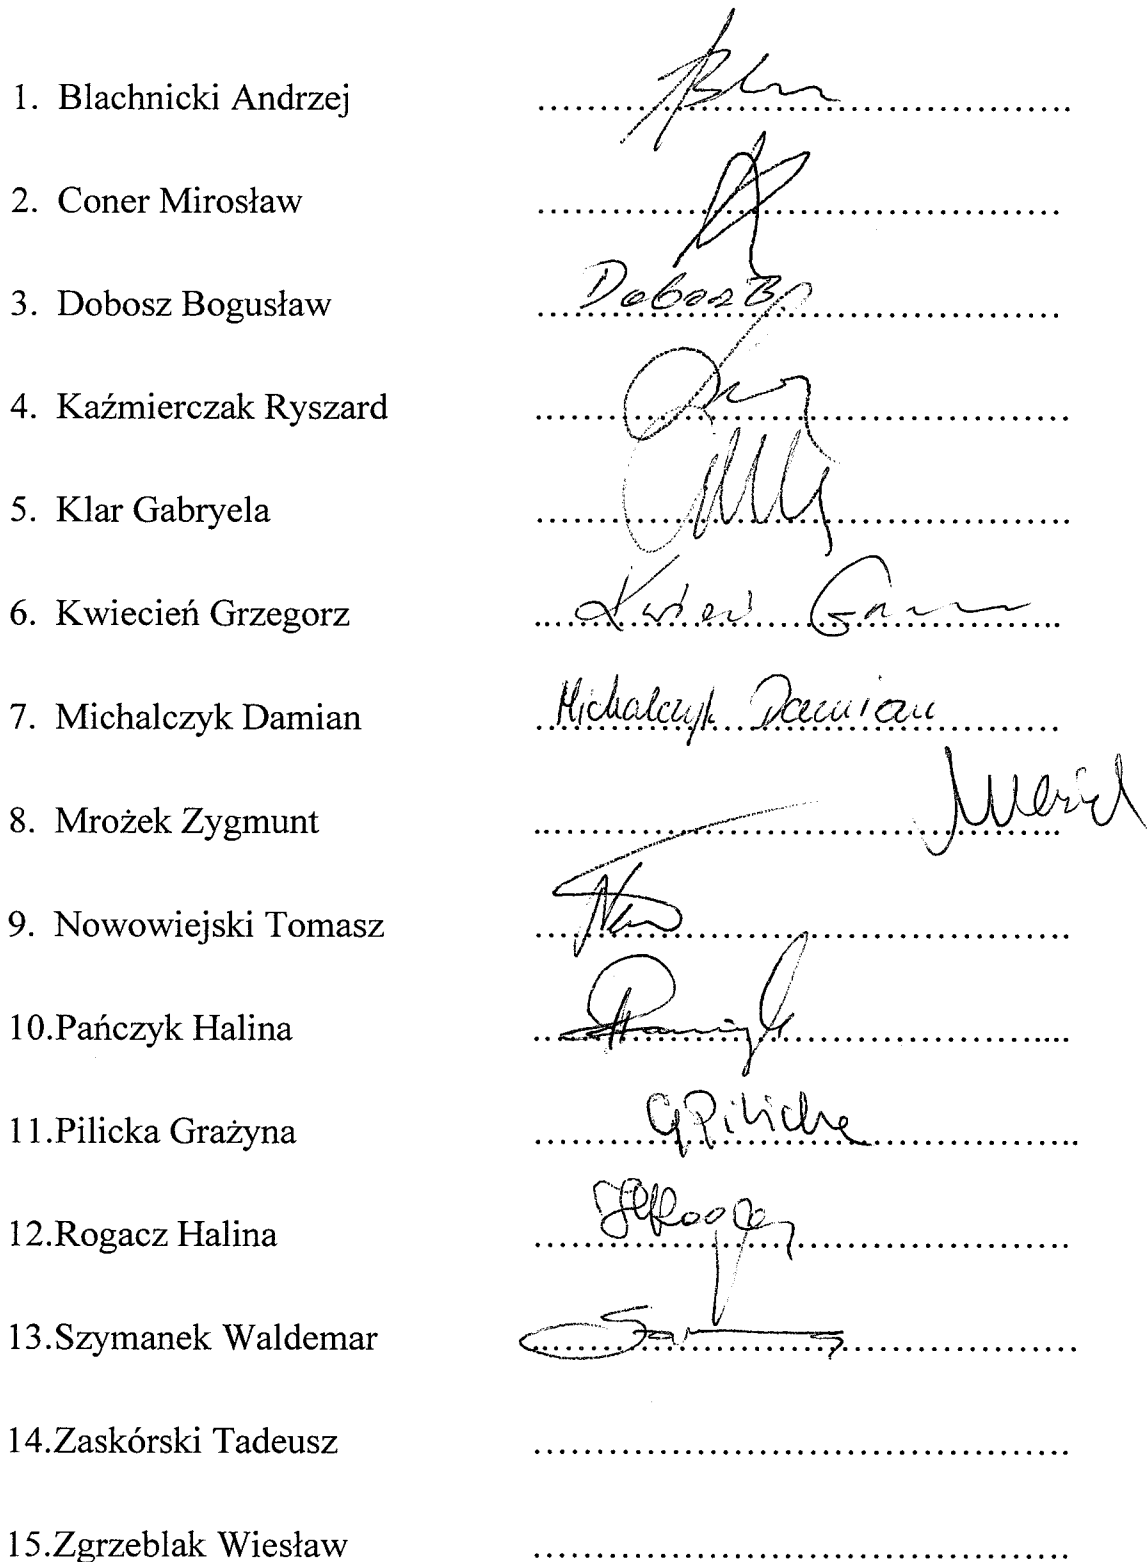 1. Blachnicki Andrzej ....................
2. Coner Mirosław ....................
3. Dobosz Bogusław .................... Dobosz B.
4. Kaźmierczak Ryszard ....................
5. Klar Gabryela ....................
6. Kwiecień Grzegorz ....................
7. Michalczyk Damian .................... Michalczyk Damian
8. Mrożek Zygmunt ....................
9. Nowowiejski Tomasz ....................
10.Pańczyk Halina ....................
11.Pilicka Grażyna .................... GPilicka
12.Rogacz Halina ....................
13.Szymanek Waldemar ....................
14.Zaskórski Tadeusz ....................
15.Zgrzeblak Wiesław ....................